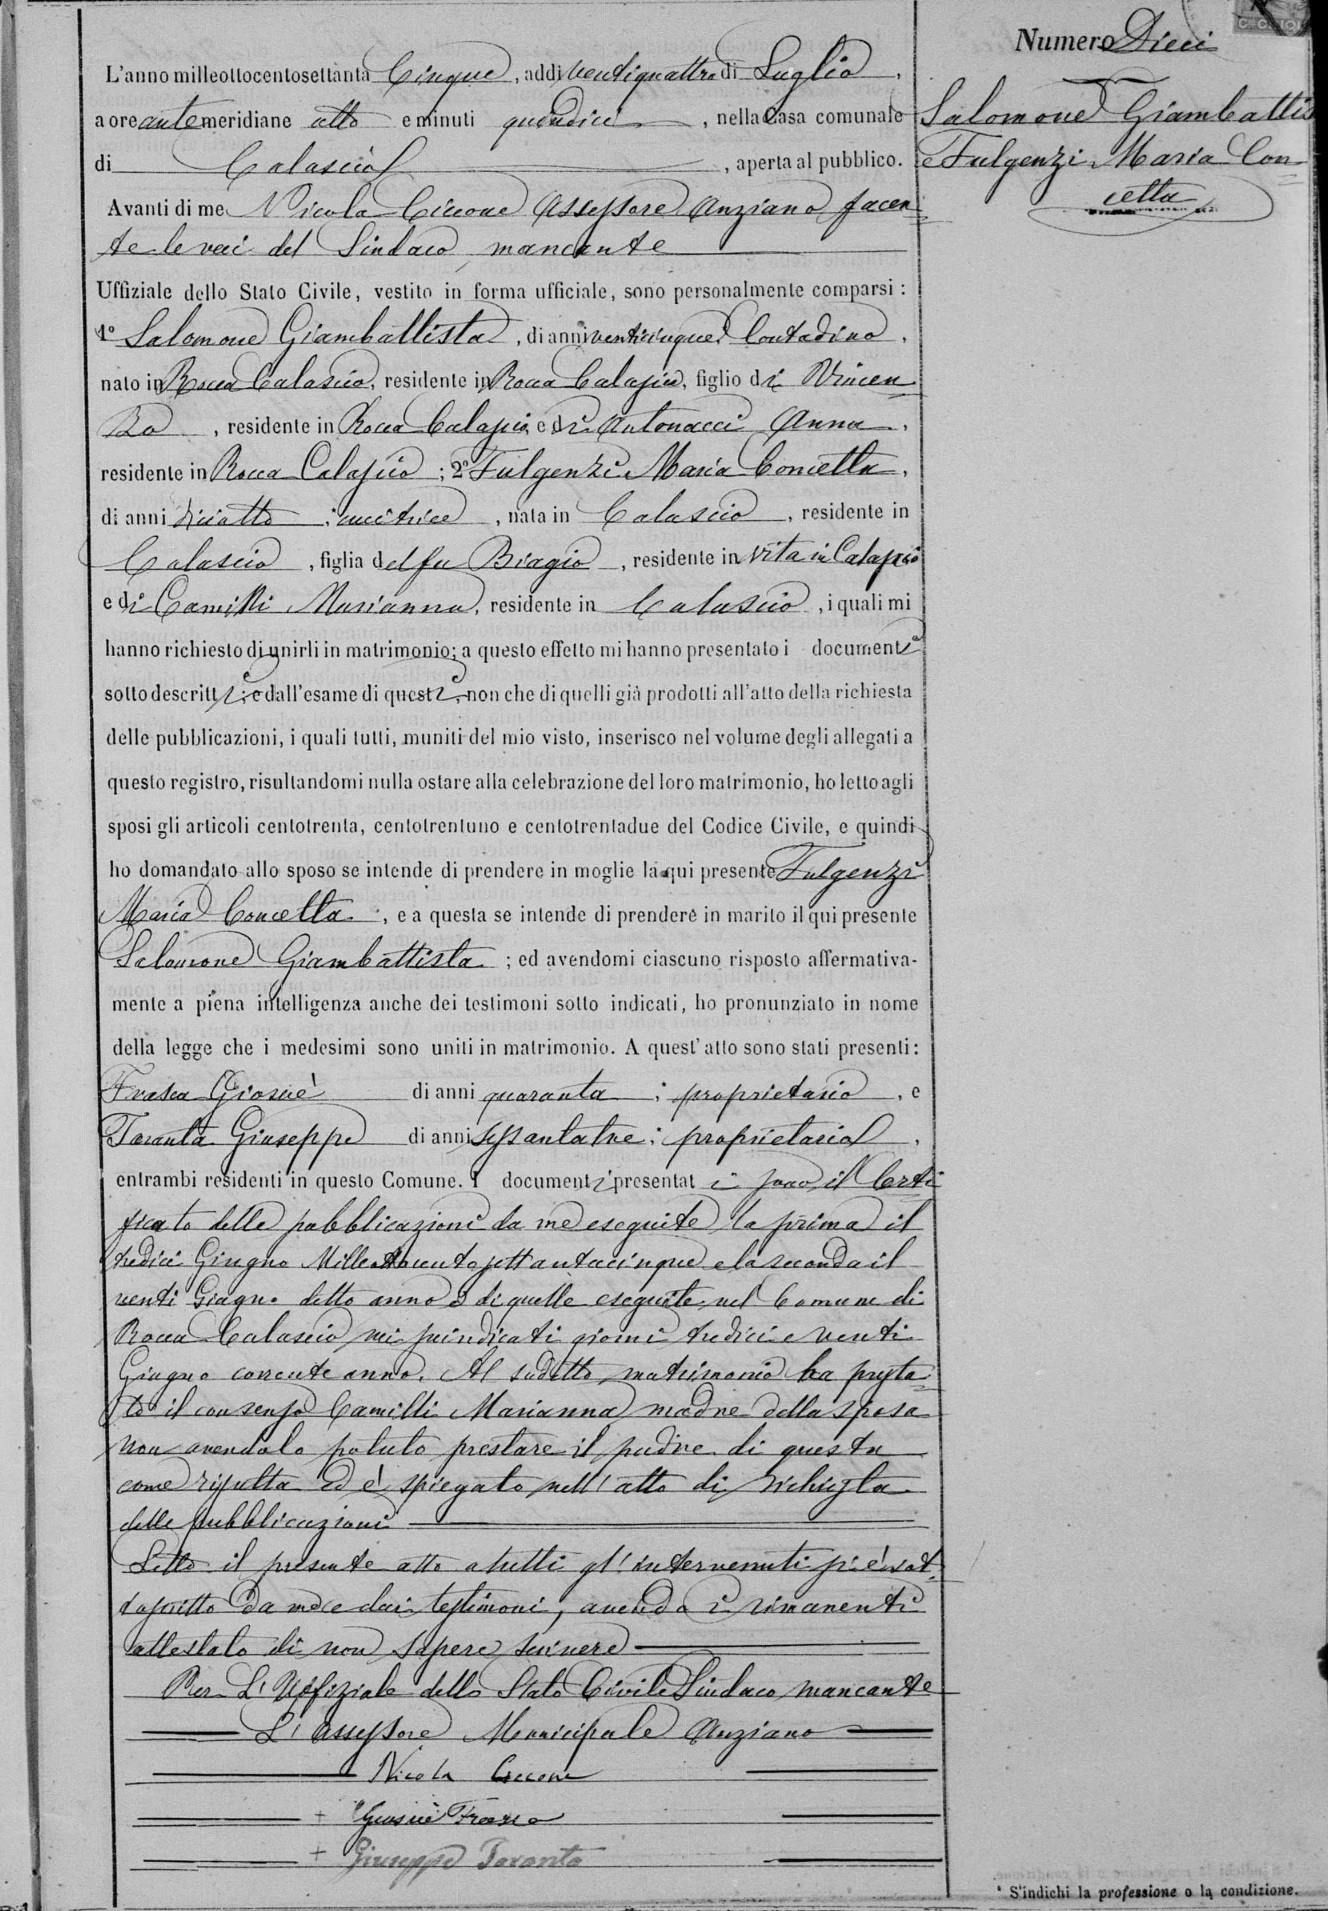 Numero Dieci
Salomone Giambattis
e Fulgenzi Maria Con=
cetta
L'anno milleottocentosettanta Cinque, addi ventiquattro di Luglio,
a ore antemeridiane otto e minuti quindici, nella Casa comunale
di Calascio, aperta al pubblico.
Avanti di me Nicola Ciccone Assessore Anziano facen=
te le veci del Sindaco mancante
Uffiziale dello Stato Civile, vestito in forma ufficiale, sono personalmente comparsi:
1° Salomone Giamballista, di anni venticinque, Contadino,
nato in Rocca Calascio, residente in Rocca Calascio, figlio di Vincen=
zo, residente in Rocca Calascio, e di Antonacci Anna,
residente in Rocca Calascio; 2° Fulgenzi Maria Concetta,
di anni diciotto; cucitrice, nata in Calascio, residente in
Calascio, figlia del fu Biagio, residente in vita in Calascio
e di Camilli Marianna, residente in Calascio, i quali mi
hanno richiesto di unirli in matrimonio; a questo effetto mi hanno presentato i documenti
sotto descritti; e dall'esame di questi, non che di quelli già prodotti all'atto della richiesta
delle pubblicazioni, i quali tutti, muniti del mio visto, inserisco nel volume degli allegati a
questo registro, risultandomi nulla ostare alla celebrazione del loro matrimonio, ho letto agli
sposi gli articoli centotrenta, centotrentuno e centotrentadue del Codice Civile, e quindi
ho domandato allo sposo se intende di prendere in moglie la qui presente Fulgenzi
Maria Concetta, e a questa se intende di prendere in marito il qui presente
Salomone Giambattista; ed avendomi ciascuno risposto affermativa-
mente a piena intelligenza anche dei testimoni sotto indicati, ho pronunziato in nome
della legge che i medesimi sono uniti in matrimonio. A quest'atto sono stati presenti:
Frasca Giosuè di anni quaranta; proprietario, e
Taranta Giuseppe di anni sessantatre; proprietario,
entrambi residenti in questo Comune. I documenti presentati sono il Certi
ficato delle pubblicazioni da me eseguite la prima il
tredici Giugno Milleottocentosettantacinque e la seconda il
venti Giugno detto anno e di quelle eseguite nel Comune di
Rocca Calascio nei suindicati giorni tredici e venti
Giugno corrente anno. Al sudetto matrimonio ha presta=
to il consenso Camilli Marianna madre della sposa
non avendolo potuto prestare il padre di questa
come risulta ed è spiegato nell'atto di richiesta
delle pubblicazioni
Letto il presente atto a tutti gl'intervenuti si è sot=
toscritto da me e dai testimoni, avendo i rimanenti
attestato di non sapere scrivere
Per L'Uffiziale dello Stato Civile Sindaco mancante
L'Assessore Municipale Anziano
Nicola Ciccone
+ Giosuè Frasca
+ Giuseppe Taranta
* S'indichi la professione o la condizione.